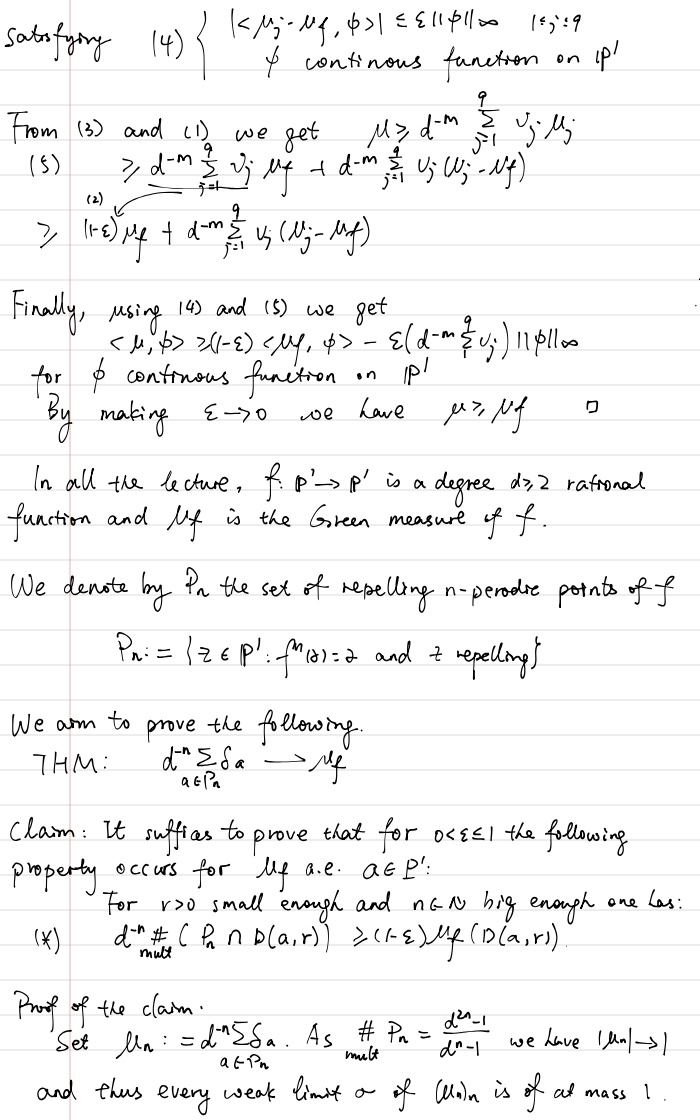 satisfying (4) { |<μ_j - μ_f, φ>| ≤ ε||φ||∞ 1≤j≤q
φ continous function on ℙ¹
From (3) and (1) we get μ ≥ d^{-m} Σ_{j=1}^{q} ν_j μ_j
(5) ≥ d^{-m} Σ_{j=1}^{q} ν_j μ_f + d^{-m} Σ_{j=1}^{q} ν_j (μ_j - μ_f)
(2)
≥ (1-ε) μ_f + d^{-m} Σ_{j=1}^{q} ν_j (μ_j - μ_f)
Finally, using (4) and (5) we get
<μ, φ> ≥ (1-ε) <μ_f, φ> - ε(d^{-m} Σ_{1}^{q} ν_j) ||φ||∞
for φ continous function on ℙ¹
By making ε→0 we have μ ≥ μ_f □
In all the lecture, f: ℙ¹→ℙ¹ is a degree d≥2 rational
function and μ_f is the Green measure of f.
We denote by P_n the set of repelling n-perodic points of f
P_n := {z ∈ ℙ¹ : f^n(z) = z and z repelling}
We aim to prove the following.
THM: d^{-n} Σ_{a∈P_n} δ_a → μ_f
Claim: It suffies to prove that for 0<ε≤1 the following
property occurs for μ_f a.e. a∈ℙ¹:
For r>0 small enough and n∈ℕ big enough one has:
(*) d^{-n} #_{mult} (P_n ∩ D(a,r)) ≥ (1-ε) μ_f (D(a,r))
Proof of the claim.
Set μ_n := d^{-n} Σ_{a∈P_n} δ_a. As #_{mult} P_n = \frac{d^{2n}-1}{d^n-1} we have |μ_n|→1
and thus every weak limit σ of (μ_n)_n is of at mass 1.